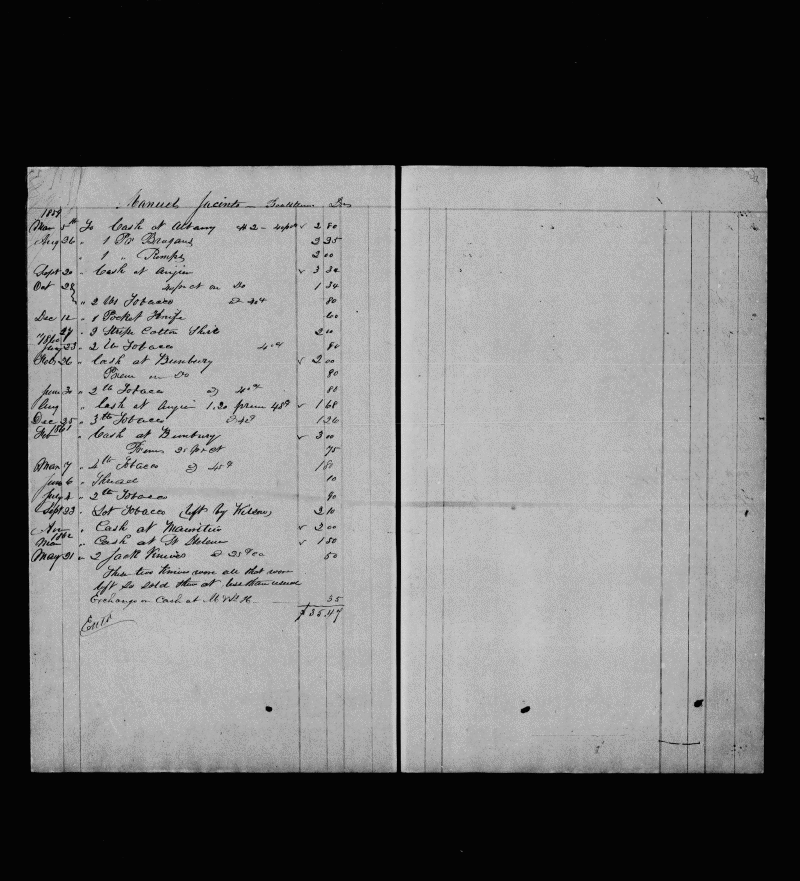 Manuel Jacinto Dr
1859
Mar 5th To Cash at Albany #2 - 40 prct 2 80
Aug 26 " 1 Pr Brogans 2 25
" 1 " Pumps 2 00
Sept 20 " Cash at Anjier 3 32
Oct 28 on Do 1 34
" 2 lbs Tobacco @ 40¢ 80
Dec 12 " 1 Pocket Knife 60
27 " 2 Stripe Cotton Shirt 2 00
1860
23 " 2 lb Tobacco 40¢ 80
Feb 26 " Cash at Bunbury 2 00
Prem on Do 80
June 30 " 2 lb Tobacco @ 40¢ 80
Aug " Cash at Anjier 1.20 prem 48¢ 1 68
Dec 25 " 3 lb Tobacco @ 42 1 26
1861
Feb " Cash at Bunbury 3 00
Prem 25 prct 75
Mar 7 " 4 lb Tobacco @ 45¢ 1 80
June 6 " Thread 10
July 4 " 2 lb Tobacco 90
Sept 23 " Lot Tobacco (left by Wilson) 2 10
" Cash at Mauritius 2 00
1862
Mar " Cash at St Helena 1 50
May 21 " 2 Jack Knives @ 25¢ ea 50
These two Knives were all that were
left so sold them at less than usual
Exchange on Cash at M & St H. 35
$35.47
Entd